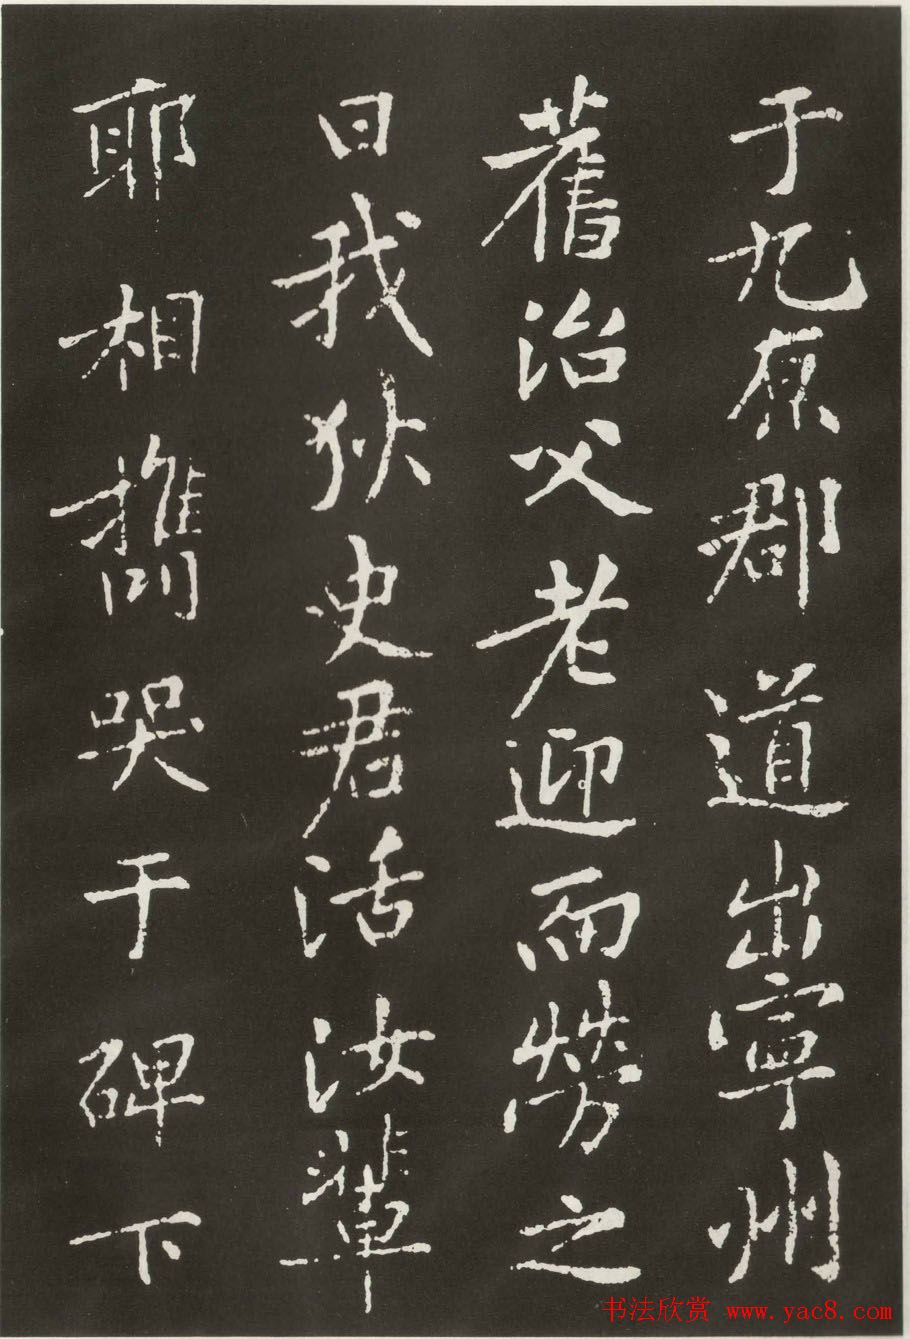 于九原郡道出寧州
舊治父老迎而勞之
曰我狄史君活汝輩
耶相攜哭于碑下
书法欣赏 www.yac8.com